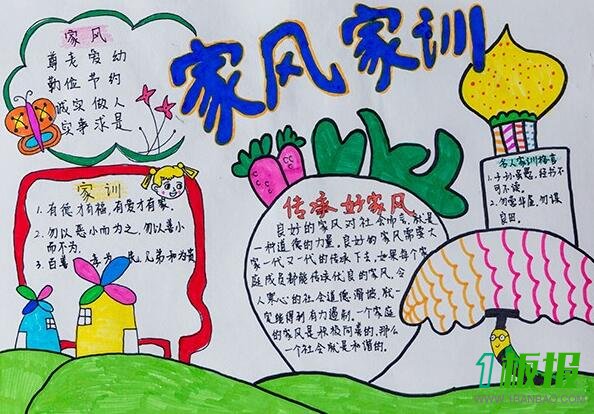 家风家训
家风
尊老爱幼
勤俭节约
诚实做人
实事求是
家训
1.有德才有福,有爱才有家。
2.勿以恶小而为之,勿以善小
而不为。
3.百善 孝为 民,兄弟和为贵
传承好家风
良好的家风对社会而言,就是
一种道德的力量。良好的家风需要大
家一代又一代的传承下去。如果每个家
庭成员都能传承优良的家风,令
人寒心的社会道德滑坡,就一
定能得到有力遏制。一个家庭
的家风是积极向善的,那么
一个社会就是和谐的。
名人家训格言
1.子孙虽愚,经书不
可不读。
2.勿营华屋,勿谋
良田。
1板报
WWW.1BANBAO.COM